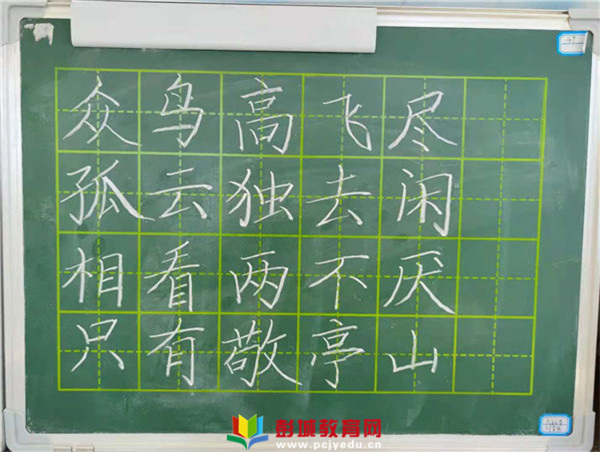 众鸟高飞尽
孤云独去闲
相看两不厌
只有敬亭山
彭城教育网
www.pcjyedu.cn